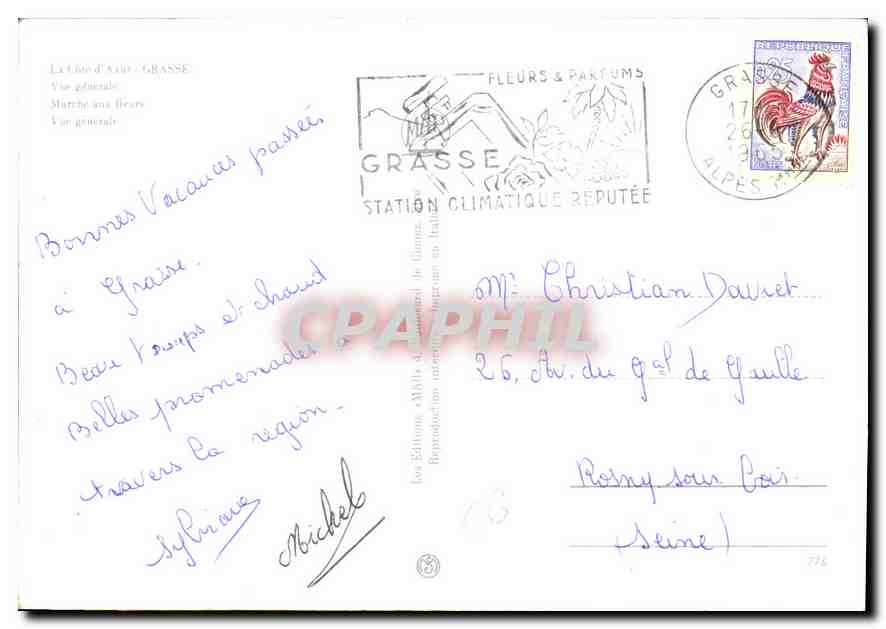 La Côte d'Azur - GRASSE
Vue générale
Marché aux fleurs
Vue générale
Bonnes Vacances passées
à Grasse.
Beau temps et chaud
Belles promenades à
travers la région.
Sylviane
Michel
FLEURS & PARFUMS
GRASSE
STATION CLIMATIQUE RÉPUTÉE
GRASSE
17
26
1965
ALPES MMES
REPUBLIQUE FRANÇAISE
0,25
POSTES
Mr Christian Daviet
26, Av. du Gal de Gaulle
Rosny sous Bois
(Seine)
Les Editions «MAR»
Reproduction interdite Imprimé en Italie
CPAPHIL
776